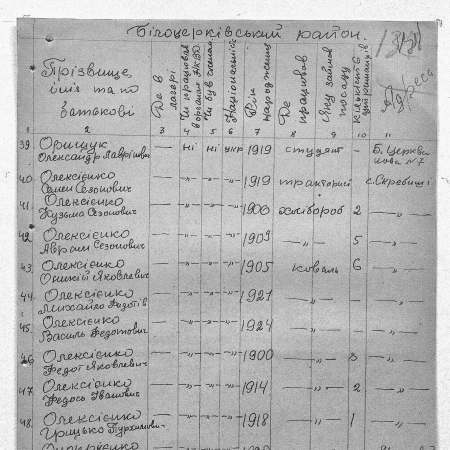 Білоцерківський район.
Прізвище, ім'я та по батькові | Де в лагері | Чи працював в органах НКВД | Чи був членом | Національність | Рік народження | Де працював | Яку займав посаду | Кількість утриманців | Адреса
1 2 3 4 5 6 7 8 9 10 11
39. Орищук Олександр Лаврінович — ні ні укр 1919 студент – Б. Церква
40. Олексієнко Семен Сезонович — „ „ „ 1919 тракторист с. Скребиші
41. Олексієнко Кузьма Сезонович — „ „ „ 1900 хлібороб 2 — „ —
42. Олексієнко Аврам Сезонович — „ „ „ 1909 — „ — 5 — „ —
43. Олексієнко Яковлевич — „ „ „ 1905 коваль 6 — „ —
44. Олексієнко Михайло Федотів — „ „ „ 1921 — „ — – — „ —
45. Олексієнко Василь Федотович — „ „ „ 1924 — „ — – — „ —
46. Олексієнко Федот Яковлевич — „ „ „ 1900 — „ — 3 — „ —
47. Олексієнко Федось Іванович — „ „ „ 1914 — „ — 2 — „ —
48. Олексієнко Грицько — „ „ „ 1918 — „ — 1 — „ —